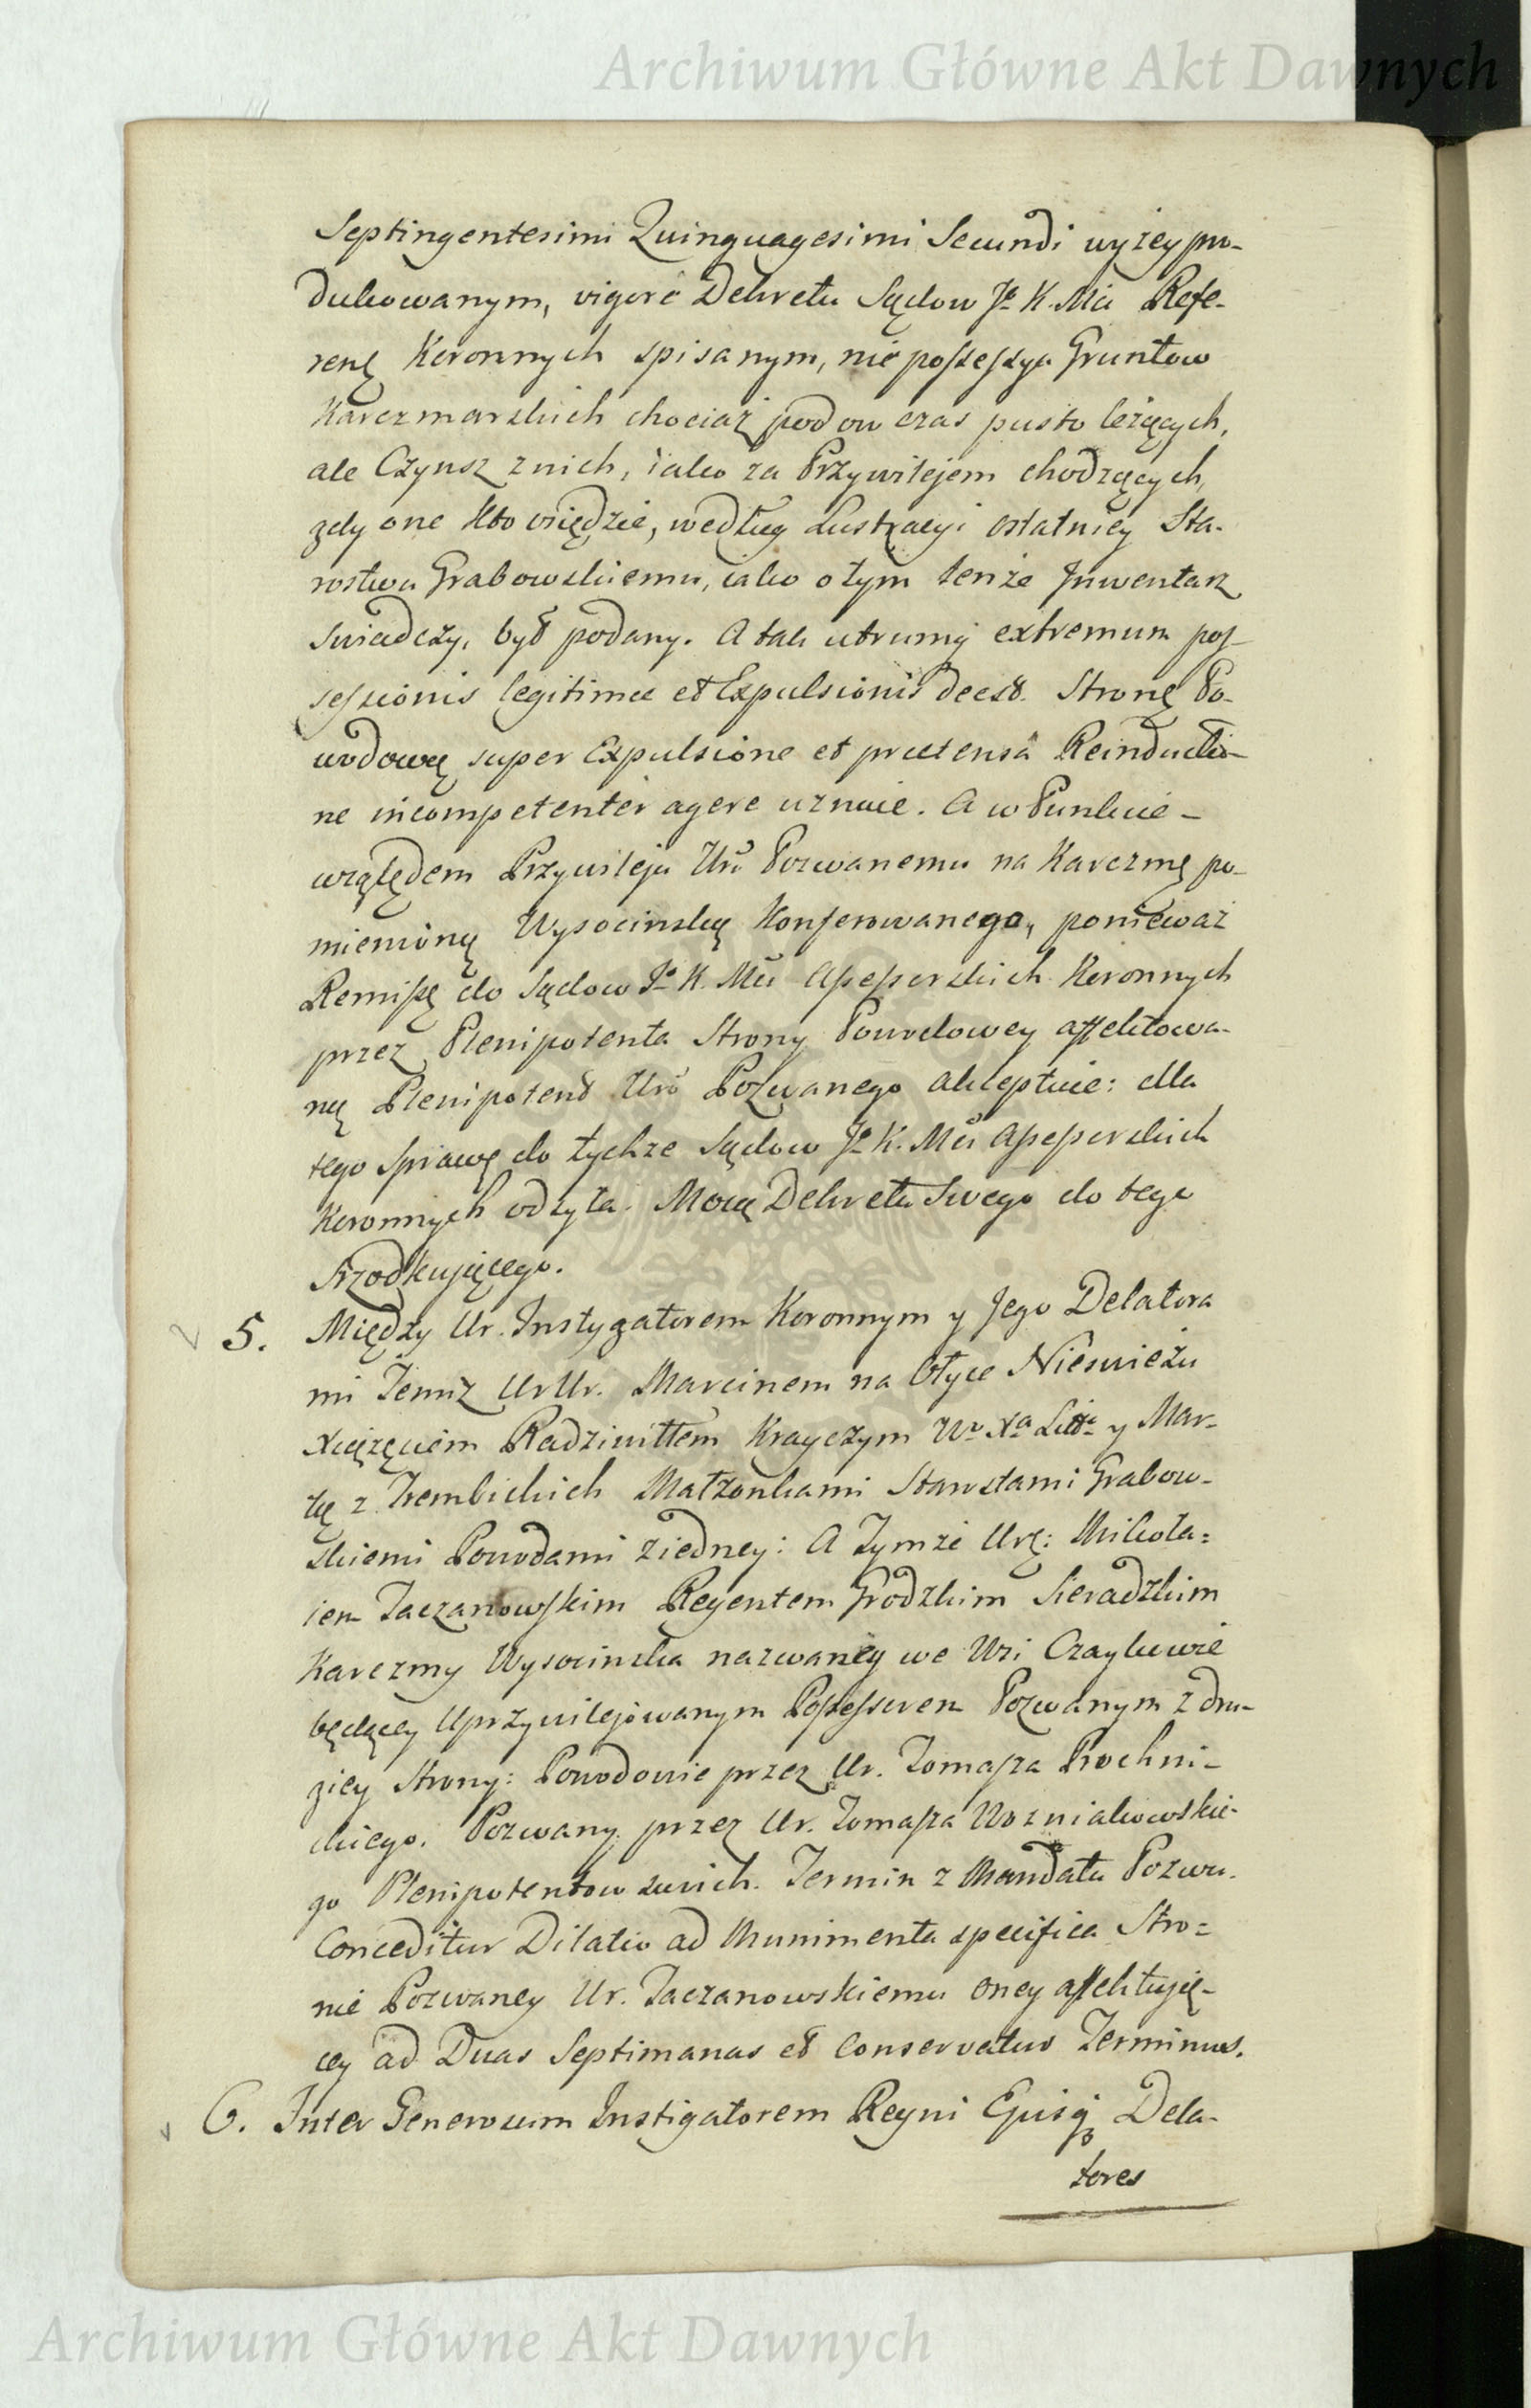 Archiwum Główne Akt Dawnych
Septingentesimi Quinquagesimi Secundi wyżey pro-
dukowanym, vigore Dekretu Sądow Jº K. Mći Refe-
renć Koronnych spisanym, nie possessya Gruntow
Karczmarskich chociaż pod ow czas pusto leżących,
ale Czynsz z nich, iako za Przywilejem chodzących,
gdy one kto osiędzie, według Lustracyi ostatniey Sta-
rostwu Grabowskiemu, iako o tym tenże Jnwentarz
swiadczy, był podany. A tak utrumq extremum pos-
sessionis legitimae et Expulsionis deest. Stronę Po-
wodową super Expulsione et praetensa Reinductio-
ne incompetenter agere uznaie. A w Punkcie -
względem Przywileju Uru Pozwanemu na Karczmę po-
mienioną Wysocinską Konferowanego, ponieważ
Remissę do Sądow Jº K. Mći Assessorskich Koronnych
przez Plenipotenta Strony Powodowey affektowa-
ną Plenipotent Urº Pozwanego akceptuie: dla
tego Sprawę do tychże Sądow Jº K. Mći Assessorskich
Koronnych odsyła. Mocą Dekretu Swego do tego
srzodkującego.
5. Między Ur. Instygatorem Koronnym y Jego Delatora
mi Jemiż UrUr. Marcinem na Ołyce Nieswieżu
Xiążęciem Radziwiłłem Krayczym Wº Xª Littº y Mar-
tą z Trembickich Małżonkami Starostami Grabow-
skiemi Powodami z iedney: A Tymże Urę: Mikoła=
iem Taczanowskim Regentem Grodzkim Sieradzkim
Karczmy Wysocinska nazwaney we Wsi Czaykowie
będącey Uprzywilejowanym Possessorem Pozwanym z dru-
giey Strony: Powodowie przez Ur. Tomasza Prochni-
ckiego. Pozwany przez Ur. Tomasza Wozniakowskie-
go Plenipotentow swich. Termin z Mandatu Pozwu.
Conceditur Dilatio ad Munimenta specifica Stro=
nie Pozwaney Ur. Taczanowskiemu oney affektują-
cey ad Duas Septimanas et Conservatur Terminus.
6. Inter Generosum Instigatorem Regni Ejusq Dela-
tores
Archiwum Główne Akt Dawnych